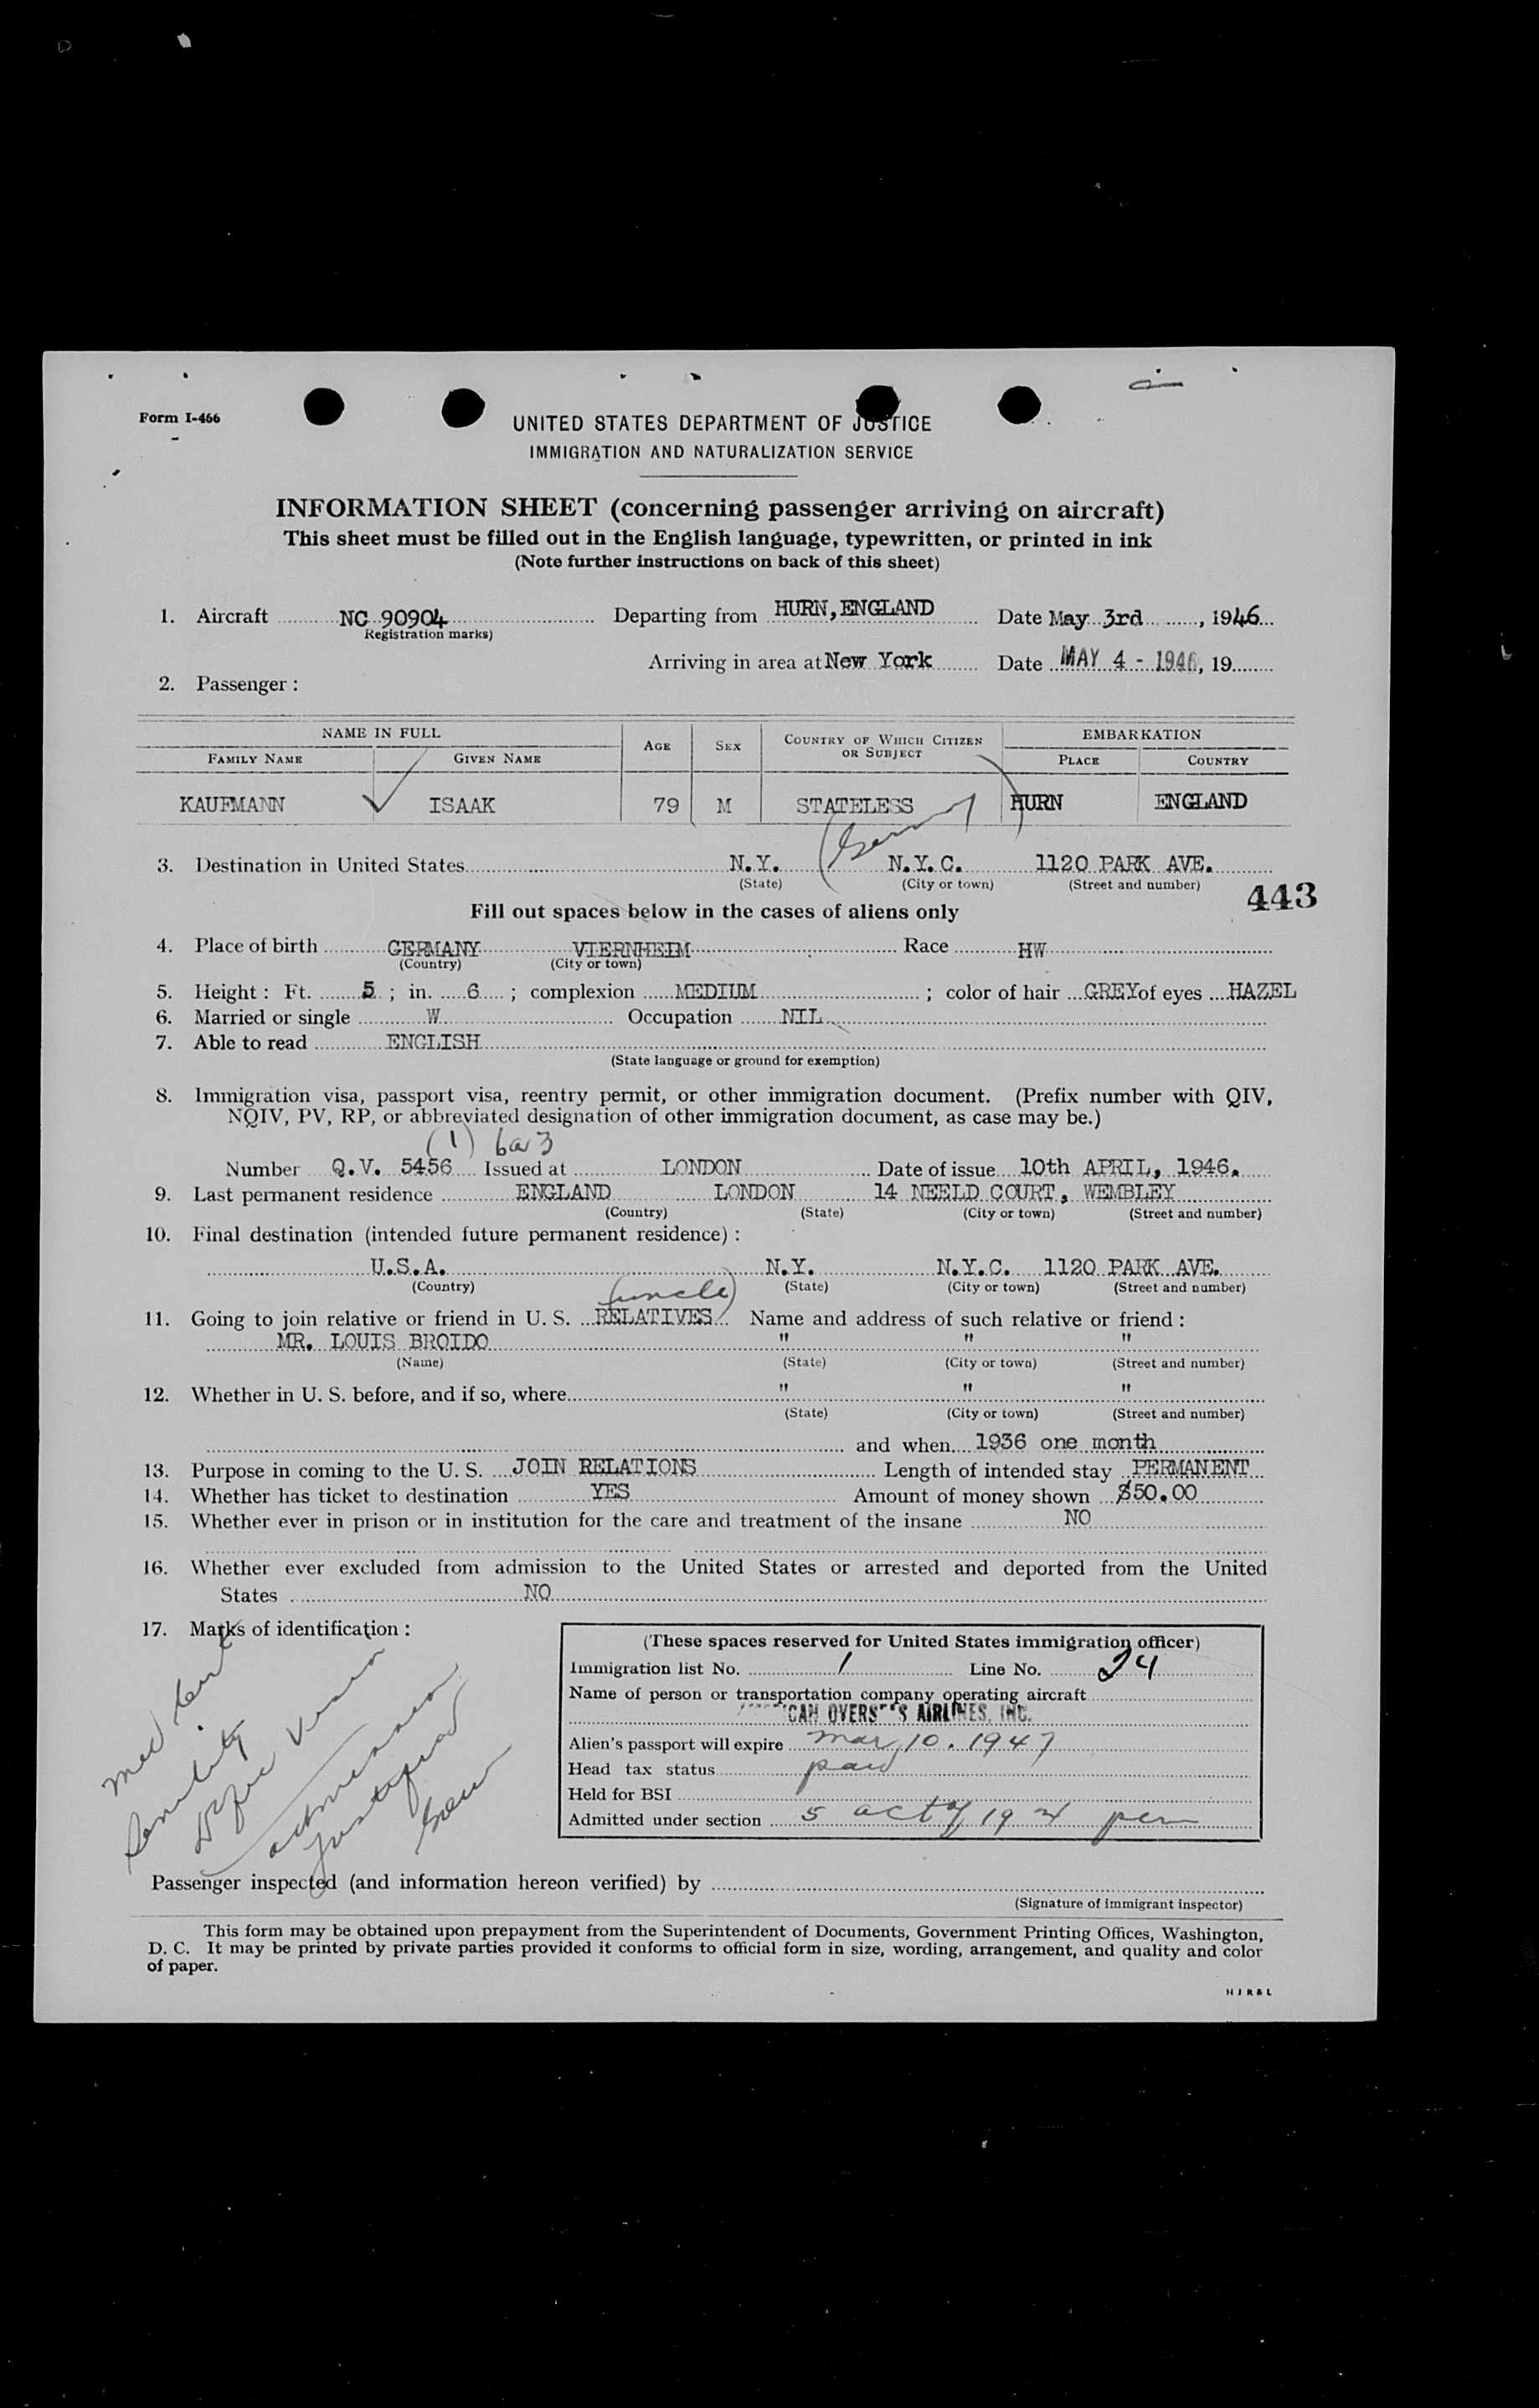 Form I-466
UNITED STATES DEPARTMENT OF JUSTICE
IMMIGRATION AND NATURALIZATION SERVICE
INFORMATION SHEET (concerning passenger arriving on aircraft)
This sheet must be filled out in the English language, typewritten, or printed in ink
(Note further instructions on back of this sheet)
1. Aircraft NC 90904 Departing from HURN, ENGLAND Date May 3rd, 1946
(Registration marks)
Arriving in area at New York Date MAY 4 - 1946, 19
2. Passenger:
NAME IN FULL AGE SEX COUNTRY OF WHICH CITIZEN OR SUBJECT EMBARKATION
FAMILY NAME GIVEN NAME PLACE COUNTRY
KAUFMANN ISAAK 79 M STATELESS HURN ENGLAND
3. Destination in United States N.Y. N.Y.C. 1120 PARK AVE.
(State) (City or town) (Street and number)
443
Fill out spaces below in the cases of aliens only
4. Place of birth GERMANY VIERNHEIM Race HW
(Country) (City or town)
5. Height: Ft. 5; in. 6; complexion MEDIUM; color of hair GREY of eyes HAZEL
6. Married or single W Occupation NIL
7. Able to read ENGLISH
(State language or ground for exemption)
8. Immigration visa, passport visa, reentry permit, or other immigration document. (Prefix number with QIV,
NQIV, PV, RP, or abbreviated designation of other immigration document, as case may be.)
(1) 6a3
Number Q.V. 5456 Issued at LONDON Date of issue 10th APRIL, 1946.
9. Last permanent residence ENGLAND LONDON 14 NEELD COURT, WEMBLEY
(Country) (State) (City or town) (Street and number)
10. Final destination (intended future permanent residence):
U.S.A. N.Y. N.Y.C. 1120 PARK AVE.
(Country) (State) (City or town) (Street and number)
(uncle)
11. Going to join relative or friend in U. S. RELATIVES Name and address of such relative or friend:
MR. LOUIS BROIDO " " "
(Name) (State) (City or town) (Street and number)
12. Whether in U. S. before, and if so, where " " "
(State) (City or town) (Street and number)
and when 1936 one month
13. Purpose in coming to the U. S. JOIN RELATIONS Length of intended stay PERMANENT
14. Whether has ticket to destination YES Amount of money shown $50.00
15. Whether ever in prison or in institution for the care and treatment of the insane NO
16. Whether ever excluded from admission to the United States or arrested and deported from the United
States NO
17. Marks of identification:
Med Cert
Senility
admission
justified
(These spaces reserved for United States immigration officer)
Immigration list No. 1 Line No. 24
Name of person or transportation company operating aircraft
AIRLINES, INC.
Alien's passport will expire Mar 10. 1947
Head tax status paid
Held for BSI
Admitted under section 5 act of 1924 per
Passenger inspected (and information hereon verified) by
(Signature of immigrant inspector)
This form may be obtained upon prepayment from the Superintendent of Documents, Government Printing Offices, Washington,
D. C. It may be printed by private parties provided it conforms to official form in size, wording, arrangement, and quality and color
of paper.
H J R & L